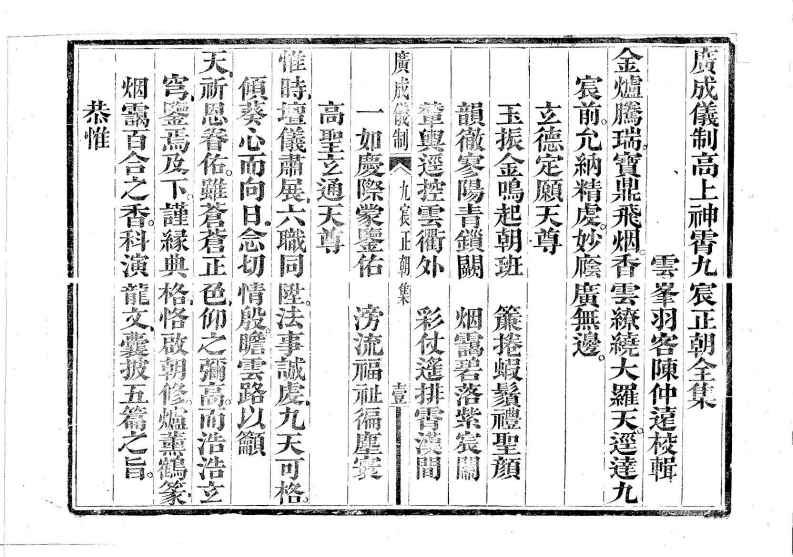 廣成儀制高上神霄九宸正朝全集
雲峯羽客陳仲遠校輯
金爐騰瑞。寶鼎飛烟。香雲繚繞大羅天。逕達九
宸前。允納精虔。妙廕廣無邊。
玄德定願天尊
玉振金鳴起朝班　簾捲蝦鬚禮聖顔
韻徹寥陽青鎖闕　烟靄碧落紫宸關
輦輿逕控雲衢外　彩仗遙排霄漢間
一如慶際蒙鑒佑　滂流福祉徧塵寰
高聖玄通天尊
廣成儀制　九宸正朝集　壹
惟時。壇儀肅展。六職同陞。法事誠虔。九天可格。
傾葵心而向日。念切情殷。瞻雲路以籲
天。祈恩眷佑。雖蒼蒼正色。仰之彌高。而浩浩玄
穹。鑒焉及下。謹緣典格。恪啟朝修。爐薰鶴篆。
烟靄百合之香。科演龍文。囊披五篇之旨。
恭惟